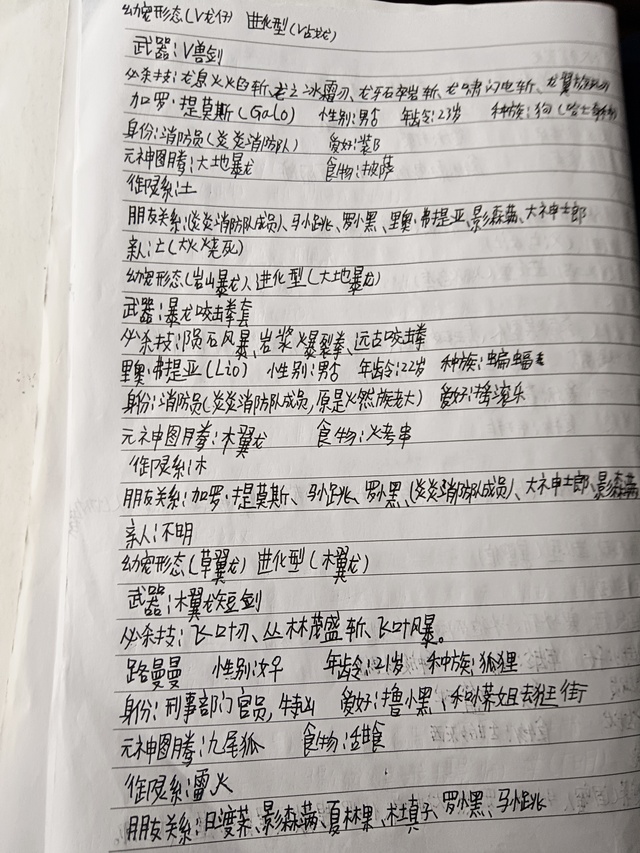 幼宠形态(V龙仔) 进化型(V古龙)
武器:V兽剑
必杀技:龙息火焰斩、龙之冰霜刃、龙牙石岩斩、龙啸闪电斩、龙翼
加罗·提莫斯(Galo) 性别:男 年龄:23岁 种族:狗(哈士奇
身份:消防员(炎炎消防队) 爱好:装B
元神图腾:大地暴龙 食物:披萨
御限系:土
朋友关系:(炎炎消防队成员)、马小跳、罗小黑、里奥·弗提亚、影森满、大神士郎
亲人:亡(大火烧死)
幼宠形态(岩山暴龙)、进化型(大地暴龙)
武器:暴龙咬击拳套
必杀技:陨石风暴、岩浆爆裂拳、远古咬击拳
里奥·弗提亚(Lio) 性别:男 年龄:22岁 种族:蝙蝠
身份:消防员(炎炎消防队成员,原是火燃族老大) 爱好:摇滚乐
元神图腾:木翼龙 食物:火考串
御限系:木
朋友关系:加罗·提莫斯、马小跳、罗小黑、(炎炎消防队成员)、大神士郎、影森满
亲人:不明
幼宠形态(草翼龙) 进化型(木翼龙)
武器:木翼龙短剑
必杀技:飞叶刃、丛林茂盛斩、飞叶风暴。
路曼曼 性别:女 年龄:21岁 种族:狐狸
身份:刑事部门官员, 爱好:撸小黑、和 菜姐去逛街
元神图腾:九尾狐 食物:甜食
御限系:雷火
朋友关系:日渡菜、影森满、夏林果、林真子、罗小黑、马小跳